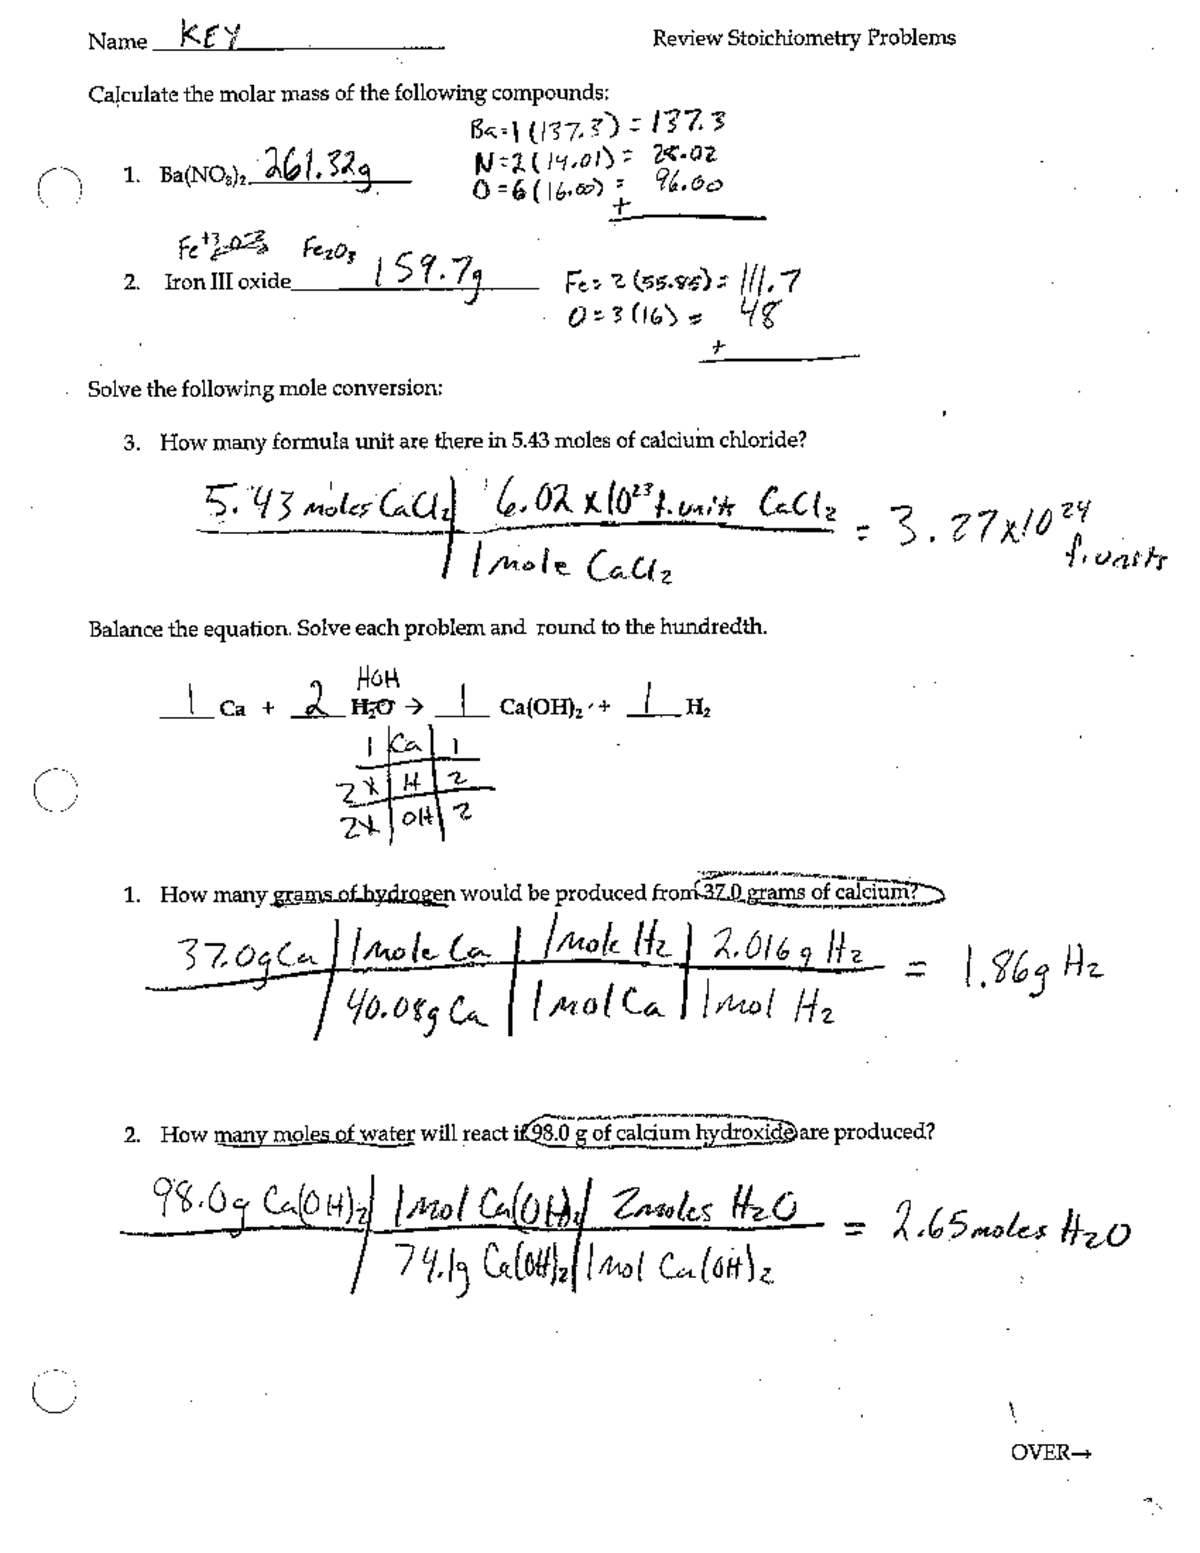 Name KEY Review Stoichiometry Problems
Calculate the molar mass of the following compounds:
Ba=1(137.3)=137.3
N=2(14.01)= 28.02
1. Ba(NO3)2 261.32g O=6(16.00)= 96.00
+
Fe+3 O-2 Fe2O3
2. Iron III oxide 159.7g Fe=2(55.85)=111.7
O=3(16)= 48
+
Solve the following mole conversion:
3. How many formula unit are there in 5.43 moles of calcium chloride?
5.43 moles CaCl2 6.02x10^23 f.units CaCl2 = 3.27x10^24 f.units
1 mole CaCl2
Balance the equation. Solve each problem and round to the hundredth.
HOH
1 Ca + 2 H2O → 1 Ca(OH)2 + 1 H2
1 Ca 1
2x H 2
2x OH 2
1. How many grams of hydrogen would be produced from 37.0 grams of calcium?
37.0g Ca 1 mole Ca 1 mole H2 2.016g H2 = 1.86g H2
40.08g Ca 1 mol Ca 1 mol H2
2. How many moles of water will react if 98.0 g of calcium hydroxide are produced?
98.0g Ca(OH)2 1 mol Ca(OH)2 2 moles H2O = 2.65 moles H2O
74.1g Ca(OH)2 1 mol Ca(OH)2
OVER→